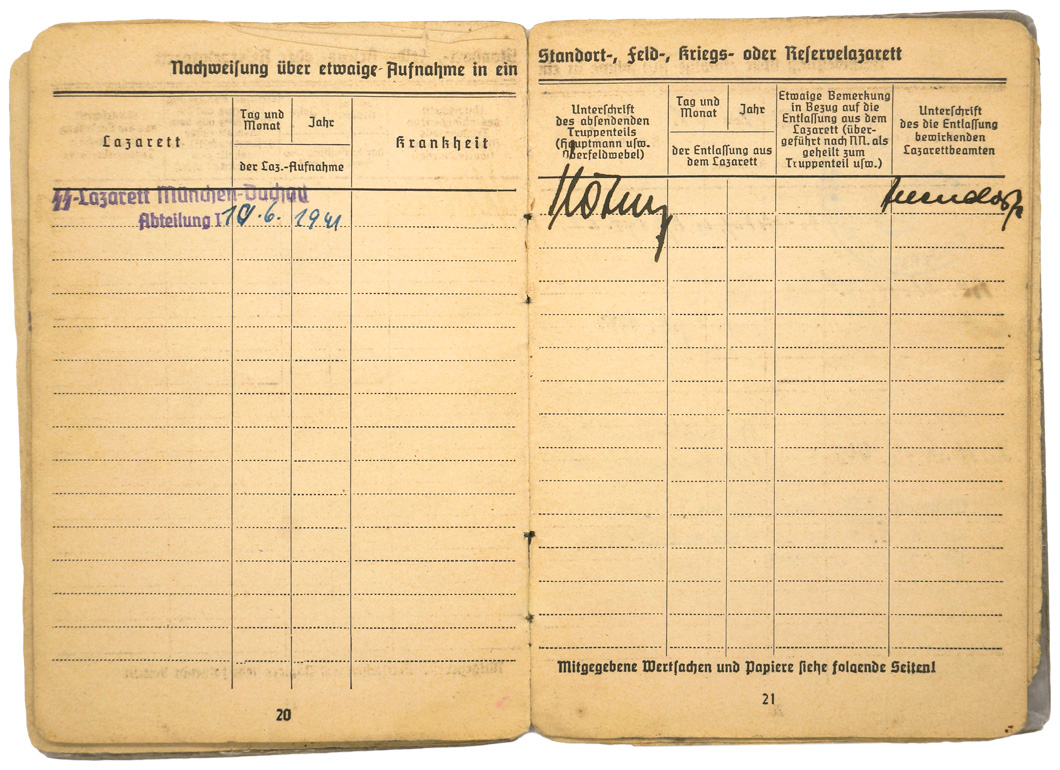 Nachweisung über etwaige Aufnahme in ein
Lazarett
Tag und
Monat
Jahr
der Laz.-Aufnahme
Krankheit
SS-Lazarett München-Dachau
Abteilung I
10.6. 1941
20
Standort-, Feld-, Kriegs- oder Reservelazarett
Unterschrift
des absendenden
Truppenteils
(Hauptmann usw.
Oberfeldwebel)
Tag und
Monat
Jahr
der Entlassung aus
dem Lazarett
Etwaige Bemerkung
in Bezug auf die
Entlassung aus dem
Lazarett (über-
geführt nach NN. als
geheilt zum
Truppenteil usw.)
Unterschrift
des die Entlassung
bewirkenden
Lazarettbeamten
Mitgegebene Wertsachen und Papiere siehe folgende Seiten!
21